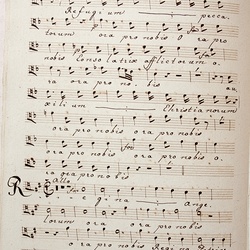 Refugium pecca
torum ora pro nobis O ra pro
nobis Consolatrix afflictorum o
ra ora pro nobis au
xilium Christianorum
ora pro nobis ora pro nobis
ora pro nobis ora pro nobis
ora ora pro nobis
Allo
Re gi na Ange
lorum ora pro nobis
ora pro nobis Regina